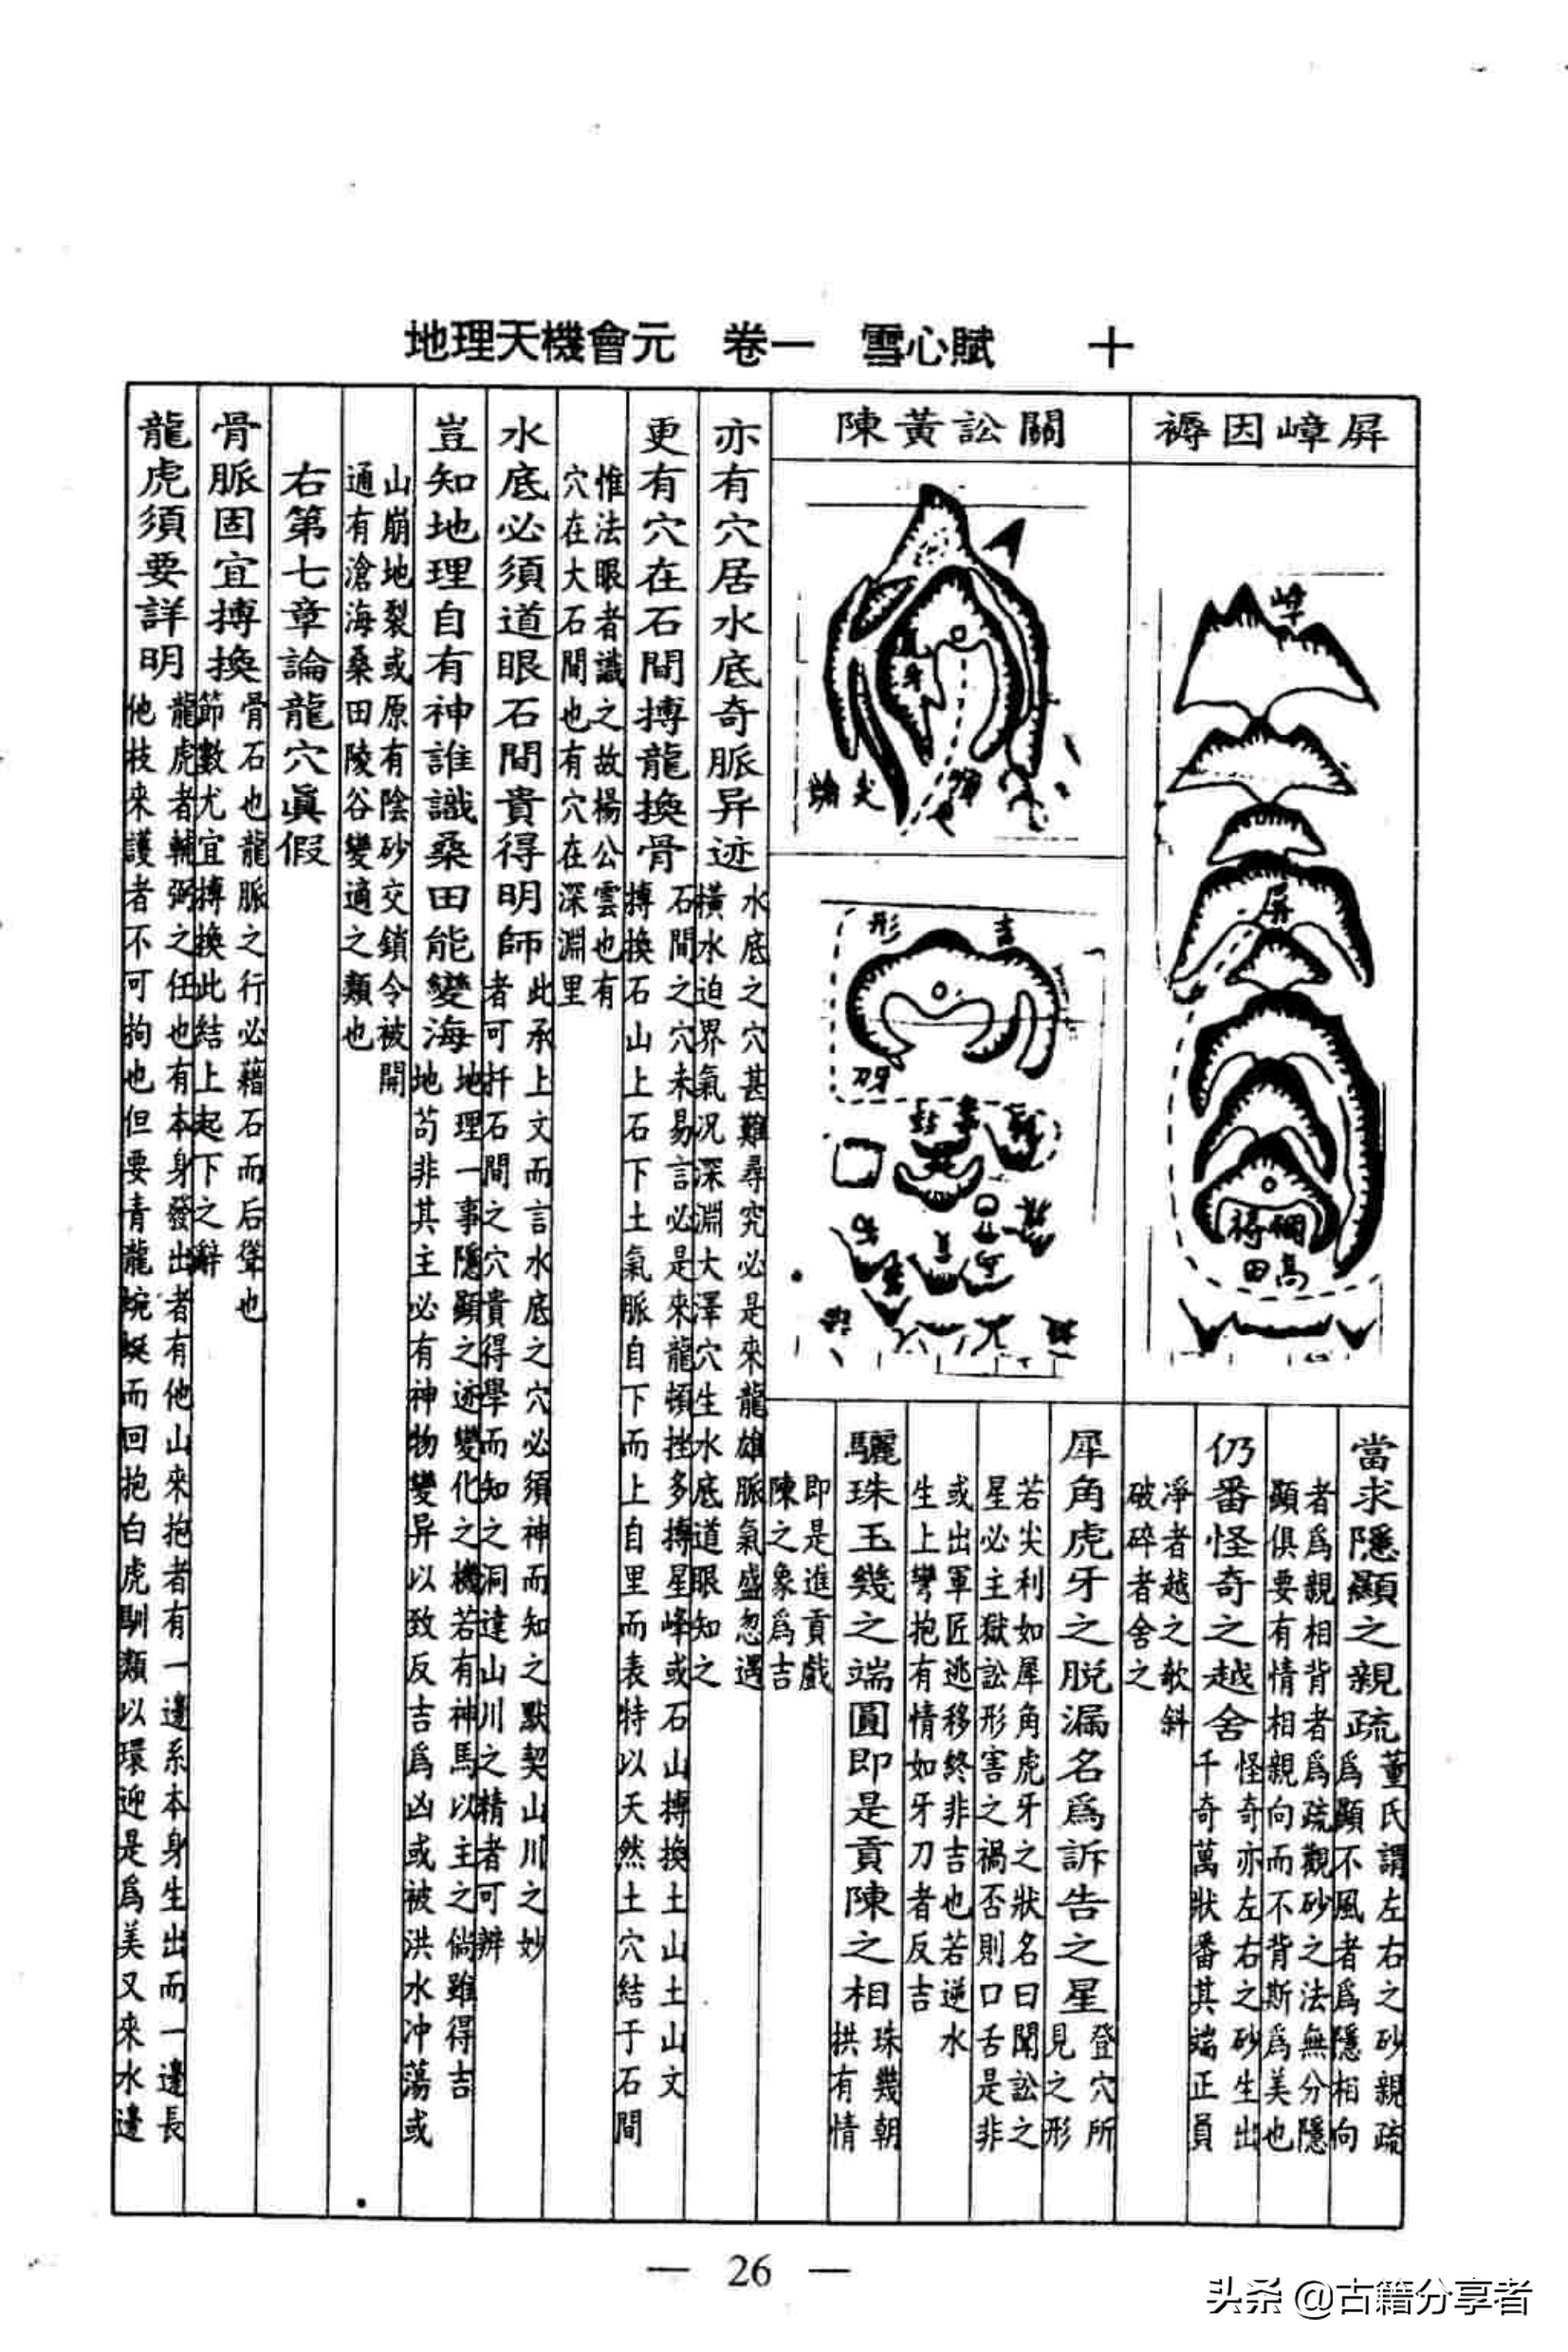 地理天機會元　卷一　雪心賦　十
屏嶂因褥
峰
屏
高田
關訟黃陳
尖
吉
形
當求隱顯之親疏
董氏謂左右之砂親疏
爲顯不風者爲隱相向
者爲親相背者爲疏觀砂之法無分隱
顯俱要有情相親向而不背斯爲美也
仍番怪奇之越舍
怪奇亦左右之砂生出
千奇萬狀番其端正員
淨者越之欹斜
破碎者舍之
犀角虎牙之脱漏名爲訴告之星
登穴所
見之形
若尖利如犀角虎牙之狀名曰聞訟之
星必主獄訟形害之禍否則口舌是非
或出軍匠逃移終非吉也若逆水
生上彎抱有情如牙刀者反吉
驪珠玉幾之端圓即是貢陳之相
珠幾朝
拱有情
即是進貢戲
陳之象爲吉
亦有穴居水底奇脈异迹
水底之穴甚難尋究必是來龍雄脈氣盛忽遇
橫水迫界氣况深淵大澤穴生水底道眼知之
更有穴在石間摶龍換骨
石間之穴未易言必是來龍頓挫多摶星峰或石山摶换土山土山文
摶换石山上石下土氣脈自下而上自里而表特以天然土穴結于石間
惟法眼者識之故楊公雲也有
穴在大石間也有穴在深淵里
水底必須道眼石間貴得明師
此承上文而言水底之穴必須神而知之默契山川之妙
者可扦石間之穴貴得學而知之洞達山川之精者可辨
豈知地理自有神誰識桑田能變海
地理一事隱顯之迹變化之機若有神馬以主之倘雖得吉
地苟非其主必有神物變异以致反吉爲凶或被洪水冲蕩或
山崩地裂或原有陰砂交鎖令被開
通有滄海桑田陵谷變適之類也
右第七章論龍穴眞假
骨脈固宜摶換
骨石也龍脈之行必藉石而后聳也
節數尤宜摶换此結上起下之辭
龍虎須要詳明
龍虎者輔弼之任也有本身發出者有他山來抱者有一邊系本身生出而一邊長
他枝來護者不可拘也但要青龍蜿蜒而回抱白虎馴頫以環迎是爲美又來水邊
— 26 —
头条 @古籍分享者